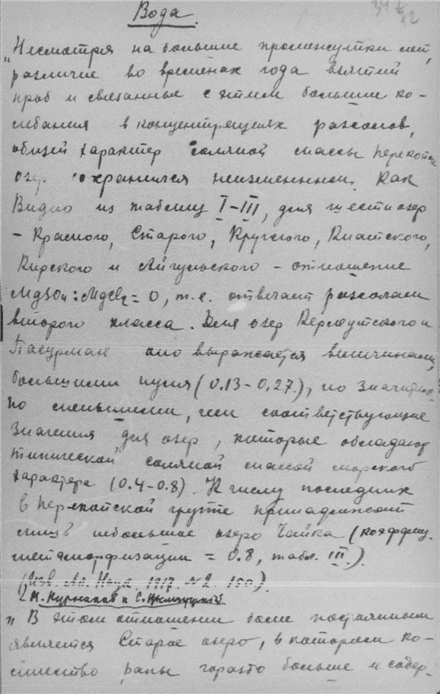 Вода.
34 32
"Несмотря на большие промежутки лет,
различие во временах года взятий
проб и связанные с этим большие ко-
лебания в концентрациях рассолов,
общий характер соляной массы перекопск.
озер сохранился неизменным. Как
видно из таблиц I-III, для шести озер
- Красного, Старого, Круглого, Киатского,
Кирского и Айгульского - отношение
MgSO4:MgCl2 = 0, т.е. отвечает рассолам
второго класса. Для озер Керлеутского и
Тасурман оно выражается величинами,
большими нуля (0.13-0.27), но значитель
но меньшими, чем соответствующие
значения для озер, которые обладают
типической соляной массой морского
характера (0.4-0.8). К числу последних
в перекопской группе принадлежит
лишь небольшое озеро Чайка (коэффиц.
метаморфизации = 0.8, табл. III.)
(Изв. Ак. Наук. 1917. N2. 150.).
Н. Курнаков и С. Жемчужный
" В этом отношении более постоянным
является Старое озеро, в котором ко-
личество рапы гораздо больше и содер-